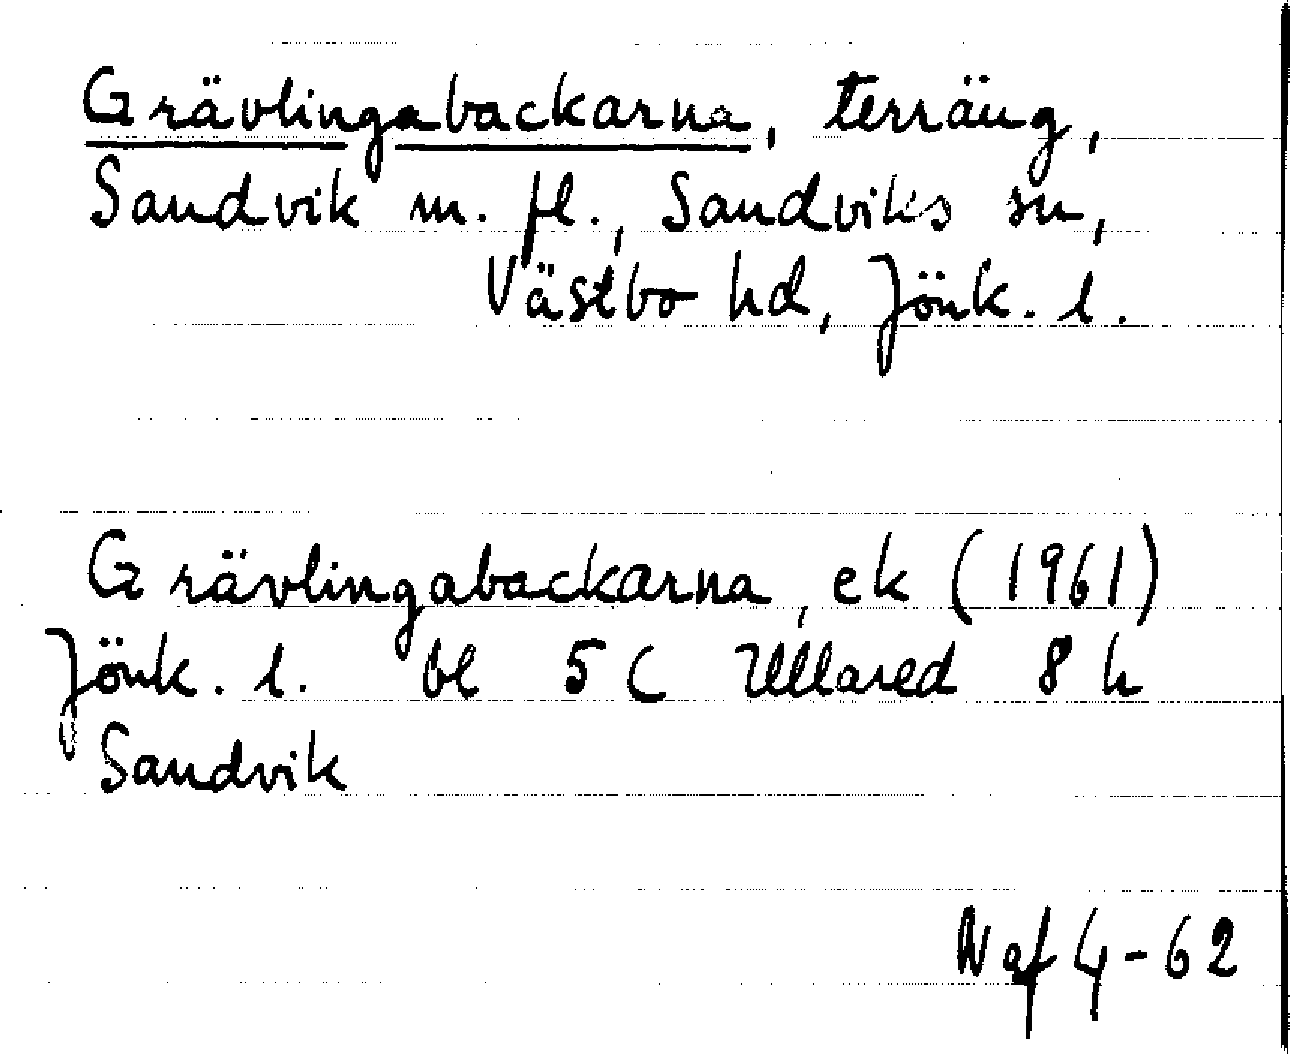 Grävlingabackarna, terräng,
Sandvik m. fl., Sandviks sn,
Västbo hd, Jönk. l.
Grävlingabackarna, ek (1961)
Jönk. l. bl 5 C Ullared 8 h
Sandvik
Naf 4-62